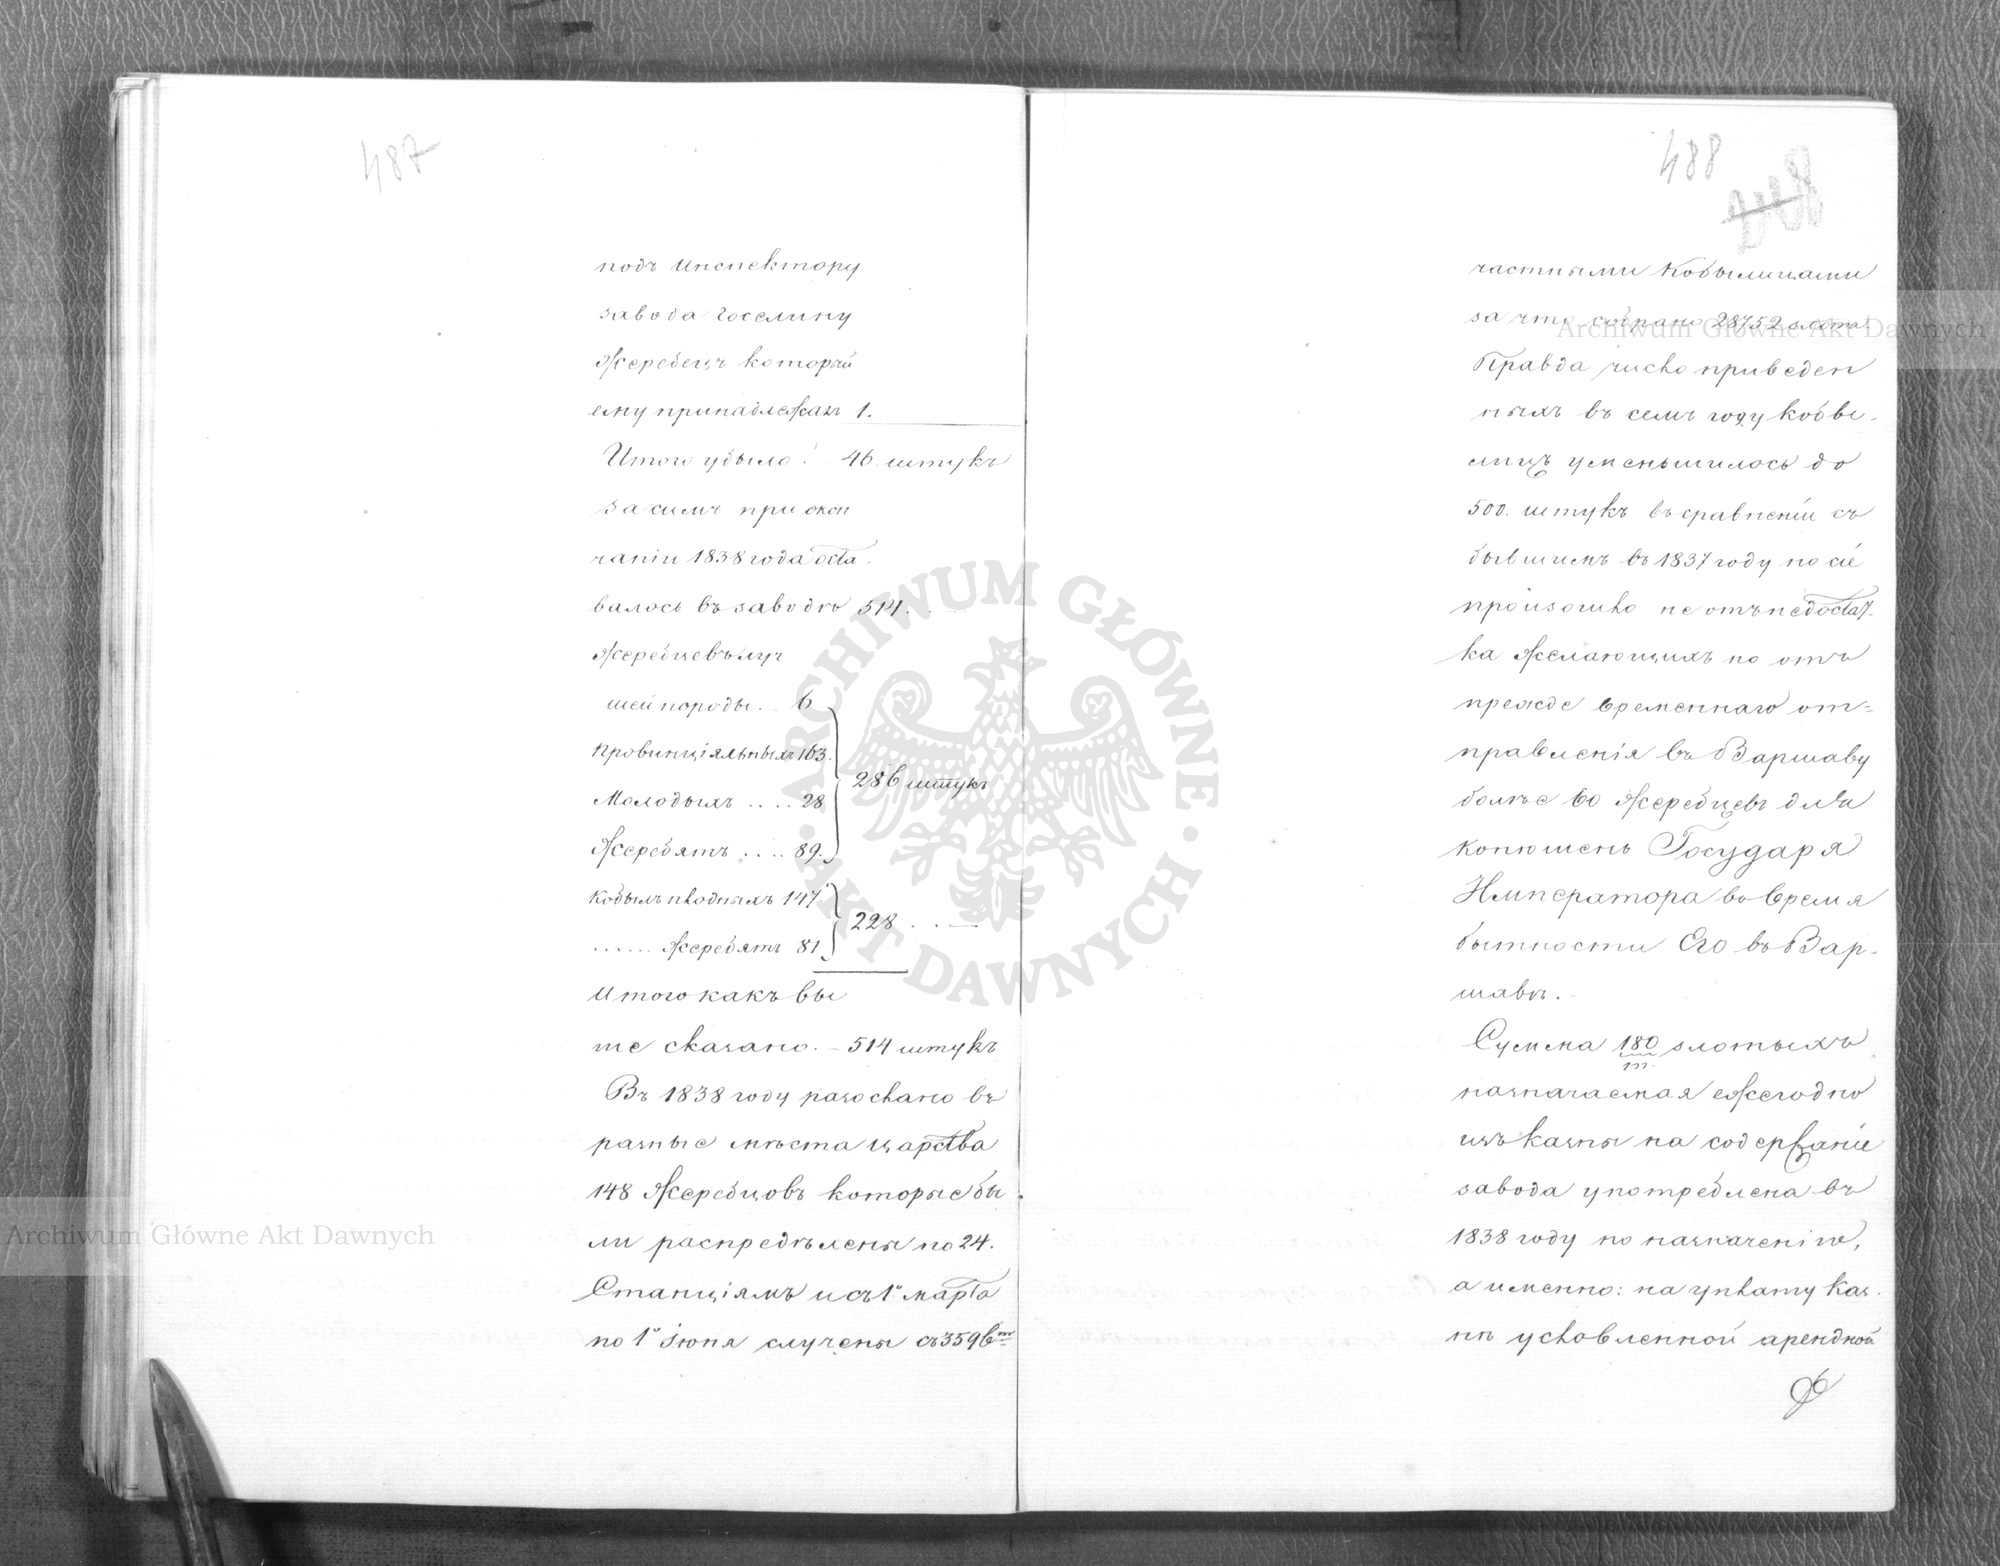 487
подъ инспектору
завода Госелину
жеребецъ который
ему принадлежалъ 1.
Итого убыло. 46. штукъ
за симъ при окон
чаніи 1838 года оста
валось въ заводѣ 514. . .
жеребцевъ луч
шей породы. 6
провинціяльныхъ 163.
молодыхъ . . . . 28
жеребятъ . . . . 89.
286 штукъ
кобылъ плодныхъ 147
. . . . . . жеребятъ 81
228 . . . —
итого какъ вы
ше сказано. — 514 штукъ
Въ 1838 году разослано въ
разные мѣста царства
148 жеребцовъ которые бы
ли распредѣлены по 24.
Станціямъ и съ 1го марта
по 1е Іюня случены съ 3596ю
488
частными кобылицами
за что собрано 28752 злота.
Правда число приведен
ныхъ въ семъ году кобы-
лицъ уменьшилось до
500. штукъ въ сравненіи съ
бывшимъ въ 1837 году но сіе
произошло не отъ недостат-
ка желающихъ но отъ
прежде временнаго от=
правленія въ Варшаву
болѣе 60 жеребцевъ для
конюшень Государя
Императора во время
бытности Его въ Вар-
шавѣ.
Сумма 180 злотыхъ
m.
назначаемая ежегодно
изъ казны на содержаніе
завода употреблена въ
1838 году по назначенію,
а именно: на уплату каз-
нѣ условленной арендной
Archiwum Główne Akt Dawnych
Archiwum Główne Akt Dawnych
ARCHIWUM GŁÓWNE AKT DAWNYCH